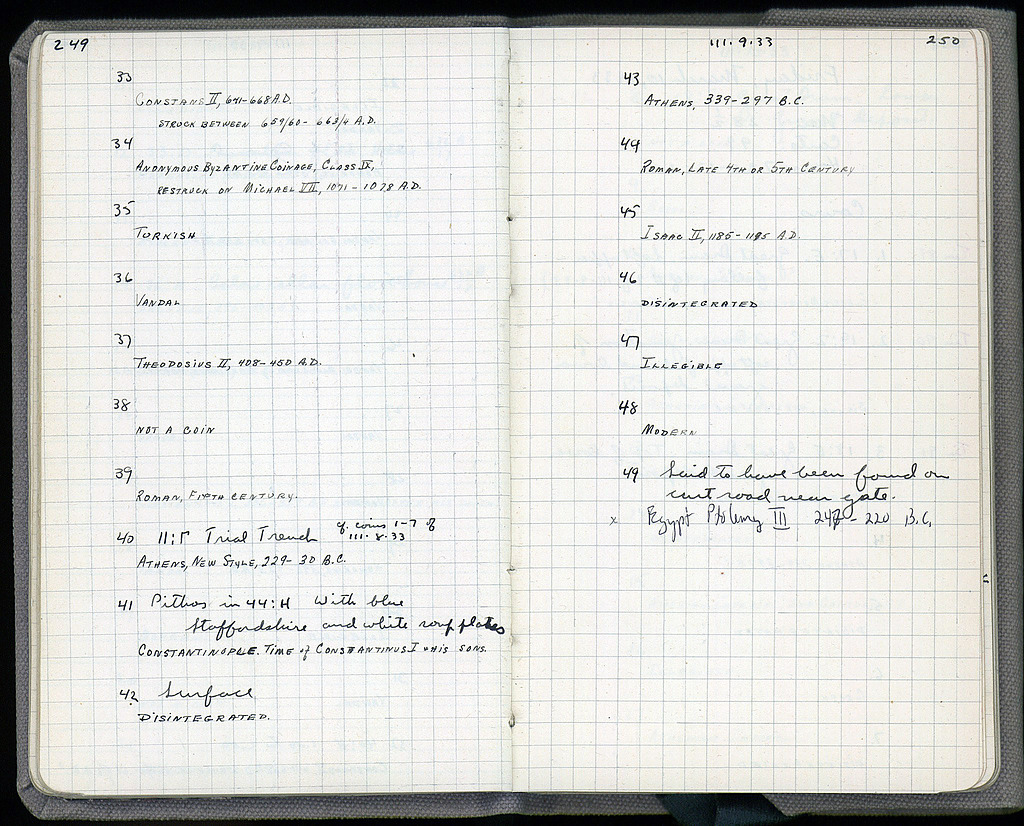 249
33
CONSTANS II, 641-668 A.D.
STRUCK BETWEEN 659/60 - 663/4 A.D.
34
ANONYMOUS BYZANTINE COINAGE, CLASS IX,
RESTRUCK ON MICHAEL VII, 1071-1078 A.D.
35
TURKISH
36
VANDAL
37
THEODOSIUS II, 408-450 A.D.
38
NOT A COIN
39
ROMAN, FIFTH CENTURY.
40 11:Γ Trial Trench cf. coins 1-7 of
111·8·33
ATHENS, NEW STYLE, 229-30 B.C.
41 Pithos in 44:H with blue
Staffordshire and white soup plates
CONSTANTINOPLE. TIME of CONSTANTINUS I & HIS SONS.
42 Surface
DISINTEGRATED.
111·9·33 250
43
ATHENS, 339-297 B.C.
44
ROMAN, LATE 4TH OR 5TH CENTURY
45
ISAAC II, 1185-1195 A.D.
46
DISINTEGRATED
47
ILLEGIBLE
48
MODERN
49 Said to have been found on
cart road near gate.
x Egypt Ptolemy III 247-220 B.C.